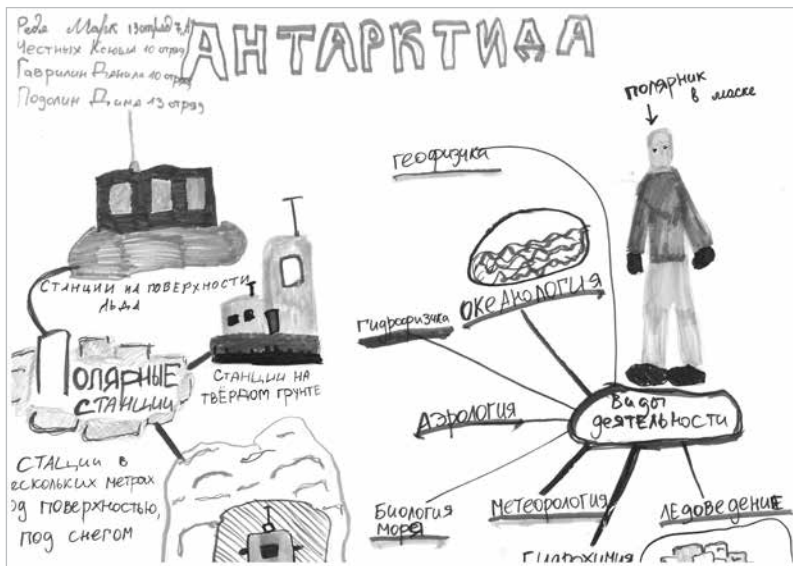 АНТАРКТИДА
Редя Марк 13 отряд
Честных Ксюша 10 отряд
Гаврилин Данила 10 отряд
Подолин Дима 13 отряд
ПОЛЯРНИК
в маске
СТАНЦИИ НА ПОВЕРХНОСТИ
ЛЬДА
ПОЛЯРНЫЕ
СТАНЦИИ
СТАНЦИИ НА
ТВЁРДОМ ГРУНТЕ
СТАЦИИ В
ескольких метрах
од поверхностью,
под снегом
ГЕОФИЗИКА
ОКЕАНОЛОГИЯ
ГИДРОФИЗИКА
АЭРОЛОГИЯ
Виды
деятельности
Биология
моря
МЕТЕОРОЛОГИЯ
ЛЕДОВЕДЕНИЕ
ГИДРОХИМИЯ